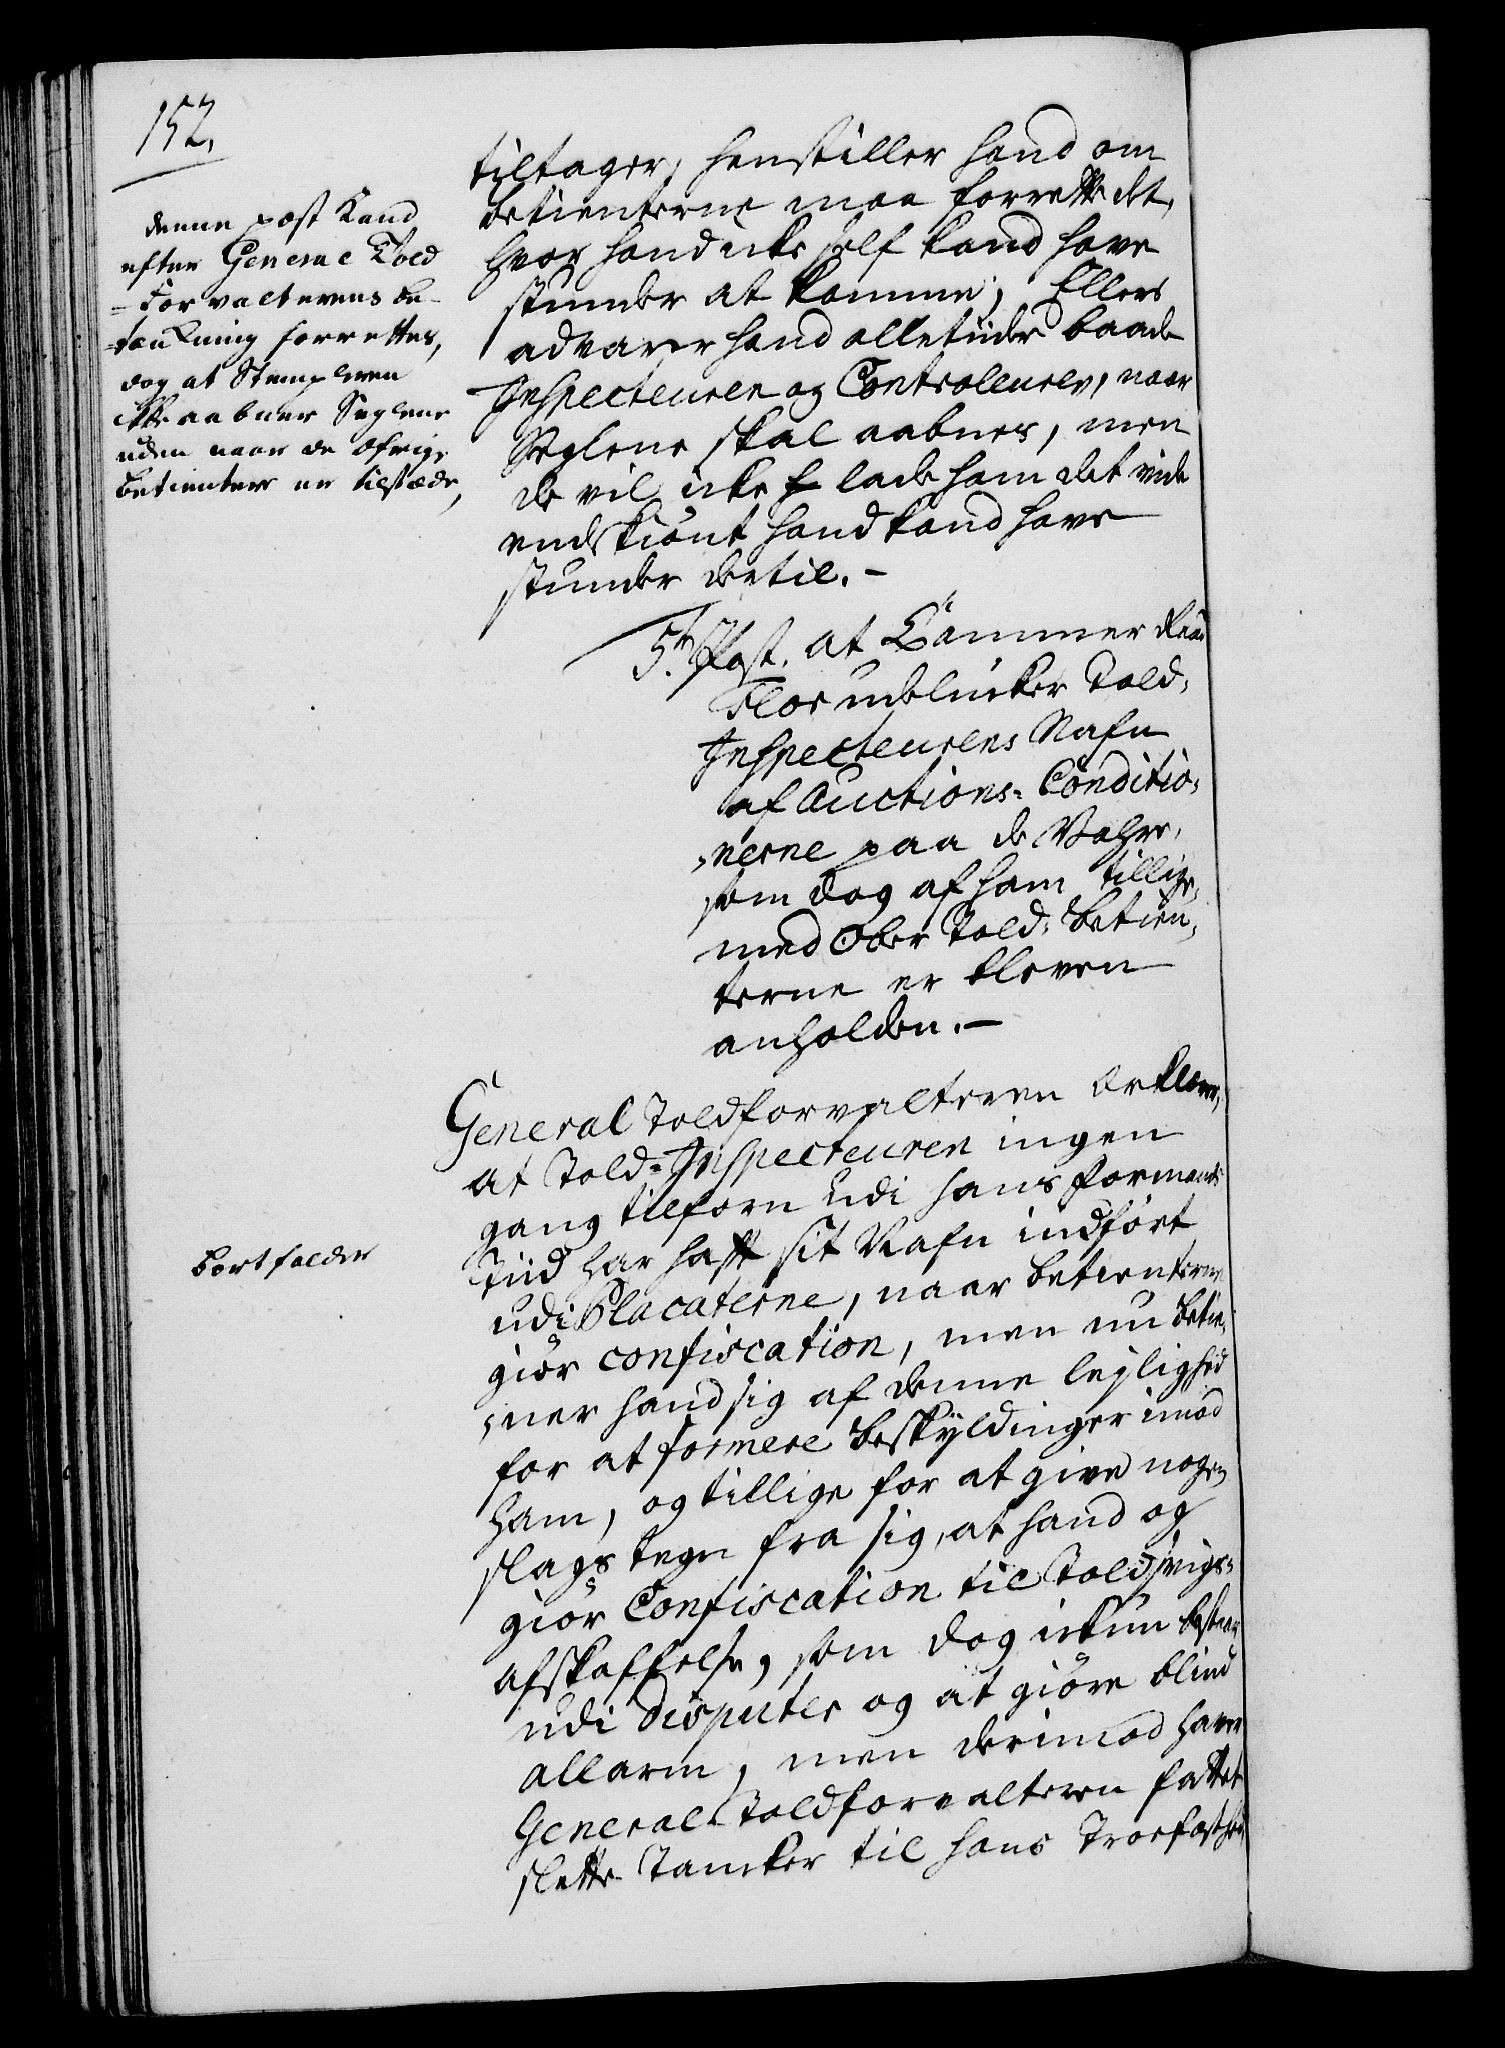 152.
denne post Kand
efter General Told
-Forvalterens be-
-tænkning forrettes,
dog at Stempleren
icke aabner Seglene
uden naar de øfrige
betienter er tilstæde,
tiltager, henstiller hand om
betienterne maa forrette det,
hvor hand icke self kand have
stunder at komme; Ellers
advarer hand alletider baade
Inspecteuren og Controleuren, naar
Seglene skal aabnes, men
de vil icke lade ham det vide
endskiønt hand kand have
stunder dertil.-
5te Post. at Cammer Raad
Flor udelucker Told,
Inspecteurens Nafn
af Auctions-Conditio,
,nerne paa de Vahre,
som dog af ham tillige,
med Ober Told-Betien,
terne er bleven
anholden.-
General Toldforvalteren erklærer,
at Told-Inspecteuren ingen
gang tilforn udi hans Formands
Tiid har haft sit Nafn indført
udi Placaterne, naar betienterne
giør confiscation, men nu betie,
,ner hand sig af denne lejlighed
for at formere beskyldinger imod
ham, og tillige for at give nogen
slags tegn fra sig, at hand og
giør Confiscation til Toldsvigs-
afskaffelse, som dog ickun bestaar
udi Disputer og at giøre blind
allarm, men derimod haver
General Toldforvalteren fattet
slette Tancker til hans Troefasthed
bortfalder